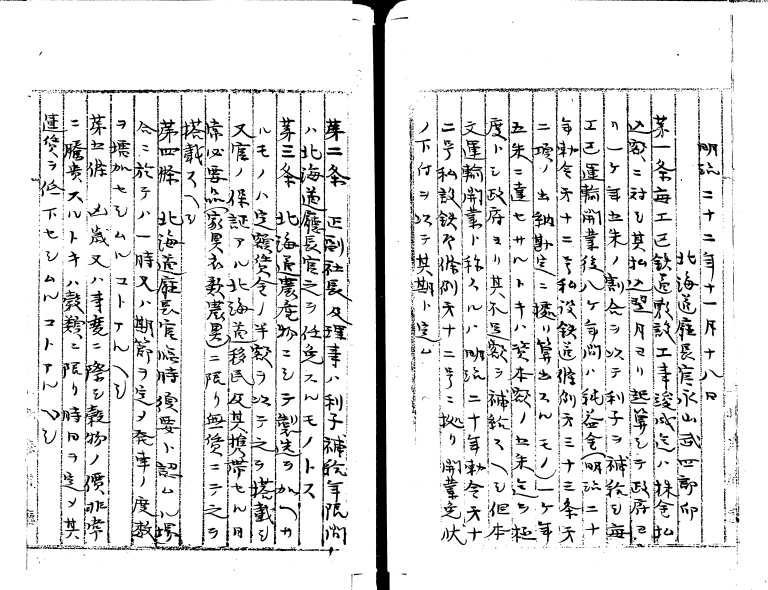 明治二十二年十一月十八日
北海道庁長官永山武四郎印
第一条毎工区鉄道敷設工事竣成迄ハ株金払
込額ニ対シ其払込翌月ヨリ起算シテ政府ヨ
リ一ケ年五朱ノ割合ヲ以テ利子ヲ補給シ毎
工区運輸開業後八ケ年間ハ純益金(明治二十
年勅令第十二号私設鉄道條例第三十三条第
二項ノ出納勘定ニ據リ算出スルモノ)一ケ年
五朱ニ達セサルトキハ資本額ノ五朱迄ヲ極
度トシ政府ヨリ其不足額ヲ補給スヘシ但本
文運輸開業ト称スルハ明治二十年勅令第十
二号私設鉄道條例第十二号ニ拠リ開業免状
ノ下付ヲ以テ其期ト定ム
第二条 正副社長及理事ハ利子補給年限間
ハ北海道庁長官之ヲ任免スルモノトス
第三条 北海道農産物ニシテ製造ヲ加ヘサ
ルモノハ定額賃金ノ半額ヲ以テ之ヲ搭載シ
又官ノ保証アル北海道移民及其携帯セル日
常必要品(家具衣服農具)ニ限リ無賃ニテ之ヲ
搭載スヘシ
第四條 北海道庁長官臨時須要ト認ムル場
合ニ於テハ一時又ハ期節ヲ定メ発車ノ度数
ヲ増加セシムルコトアルヘシ
第五條 凶歳又ハ事変ニ際シ穀物ノ價非常
ニ騰貴スルトキハ穀類ニ限リ時日ヲ定メ其
運賃ヲ低下セシムルコトアルヘシ